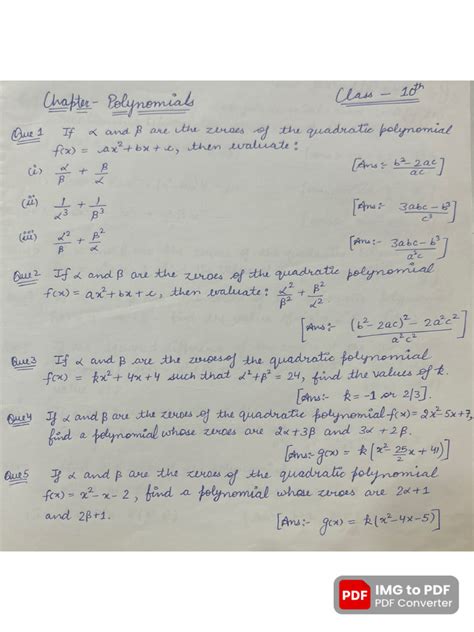 Chapter - Polynomials Class - 10th
Que 1 If α and β are the zeroes of the quadratic polynomial
f(x) = ax²+bx+c, then evaluate :
(i) α/β + β/α [Ans:- b²-2ac/ac]
(ii) 1/α³ + 1/β³ [Ans:- 3abc-b³/c³]
(iii) α²/β + β²/α [Ans:- 3abc-b³/a²c]
Que2 If α and β are the zeroes of the quadratic polynomial
f(x) = ax²+bx+c, then evaluate: α²/β² + β²/α²
[Ans:- (b²-2ac)²-2a²c²/a²c²]
Que3 If α and β are the zeroes of the quadratic polynomial
f(x) = kx²+4x+4 such that α²+β²=24, find the values of k.
[Ans:- k=-1 or 2/3].
Que4 If α and β are the zeroes of the quadratic polynomial f(x)=2x²-5x+7,
find a polynomial whose zeroes are 2α+3β and 3α+2β.
[Ans:- g(x) = k(x²-25/2x+41)]
Que5 If α and β are the zeroes of the quadratic polynomial
f(x) = x²-x-2, find a polynomial whose zeroes are 2α+1
and 2β+1. [Ans:- g(x) = k(x²-4x-5)]
PDF IMG to PDF
PDF Converter